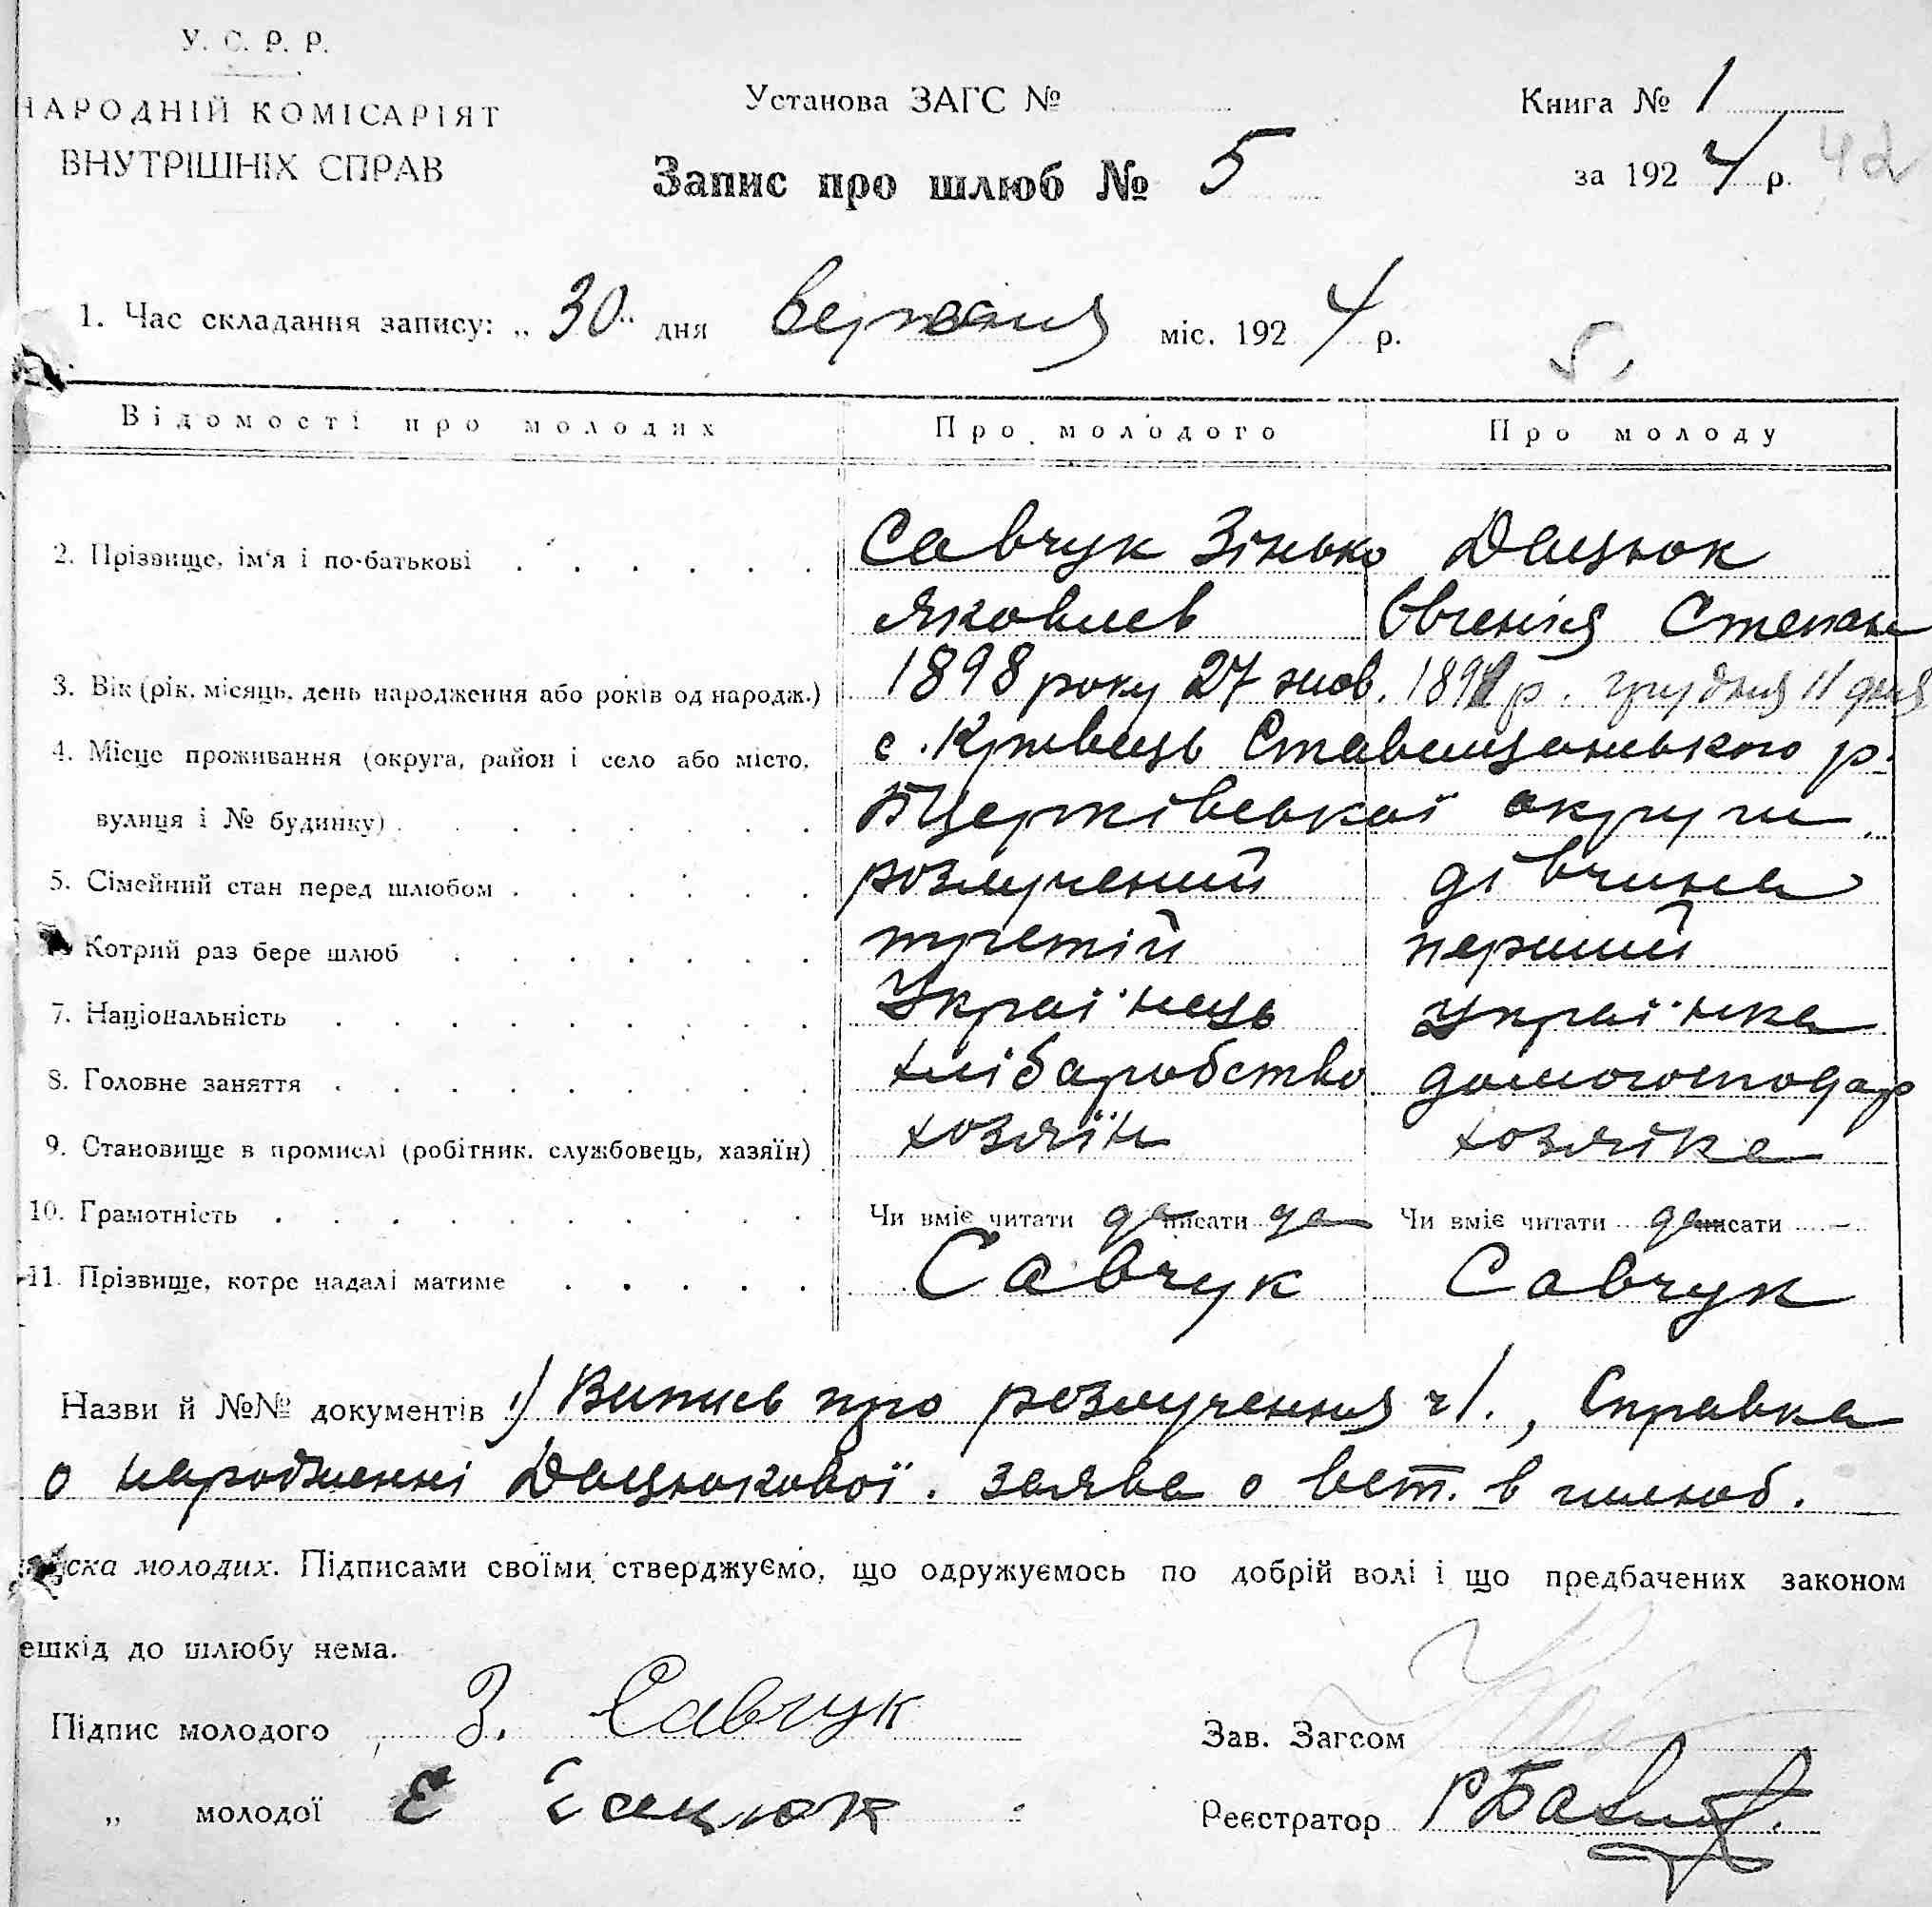 У. С. Р. Р.
НАРОДНІЙ КОМІСАРІЯТ
ВНУТРІШНІХ СПРАВ
Установа ЗАГС №
Книга № 1
Запис про шлюб № 5
за 1924 р.
42
1. Час складання запису: „30" дня вересня міс. 1924 р.
5.
Відомості про молодих Про молодого Про молоду
2. Прізвище, ім'я і по-батькові Савчук Зінько Дацюк
Яковлев Євгенія Степан
3. Вік (рік, місяць, день народження або років од народж.) 1898 року 27 жов. р. грудня 11 дня
4. Місце проживання (округа, район і село або місто, с. Кривець Ставищанського р.
вулиця і № будинку) БЦерківської округи
5. Сімейний стан перед шлюбом розлучений дівчина
Котрий раз бере шлюб третій перший
7. Національність Українець Українка
8. Головне заняття хлібаробство домогосподар
9. Становище в промислі (робітник, службовець, хазяїн) хозяїн хозяйка
10. Грамотність Чи вміє читати да писати да Чи вміє читати да писати —
11. Прізвище, котре надалі матиме Савчук Савчук
Назви й №№ документів 1) Випись про розлучення ч 1., Справка
о народженні Дацюкової. заява о вст. в шлюб.
ска молодих. Підписами своїми стверджуємо, що одружуємось по добрій волі і що предбачених законом
ешкід до шлюбу нема.
Підпис молодого З. Савчук
Зав. Загсом
„ молодої Є Дацюк
Реєстратор